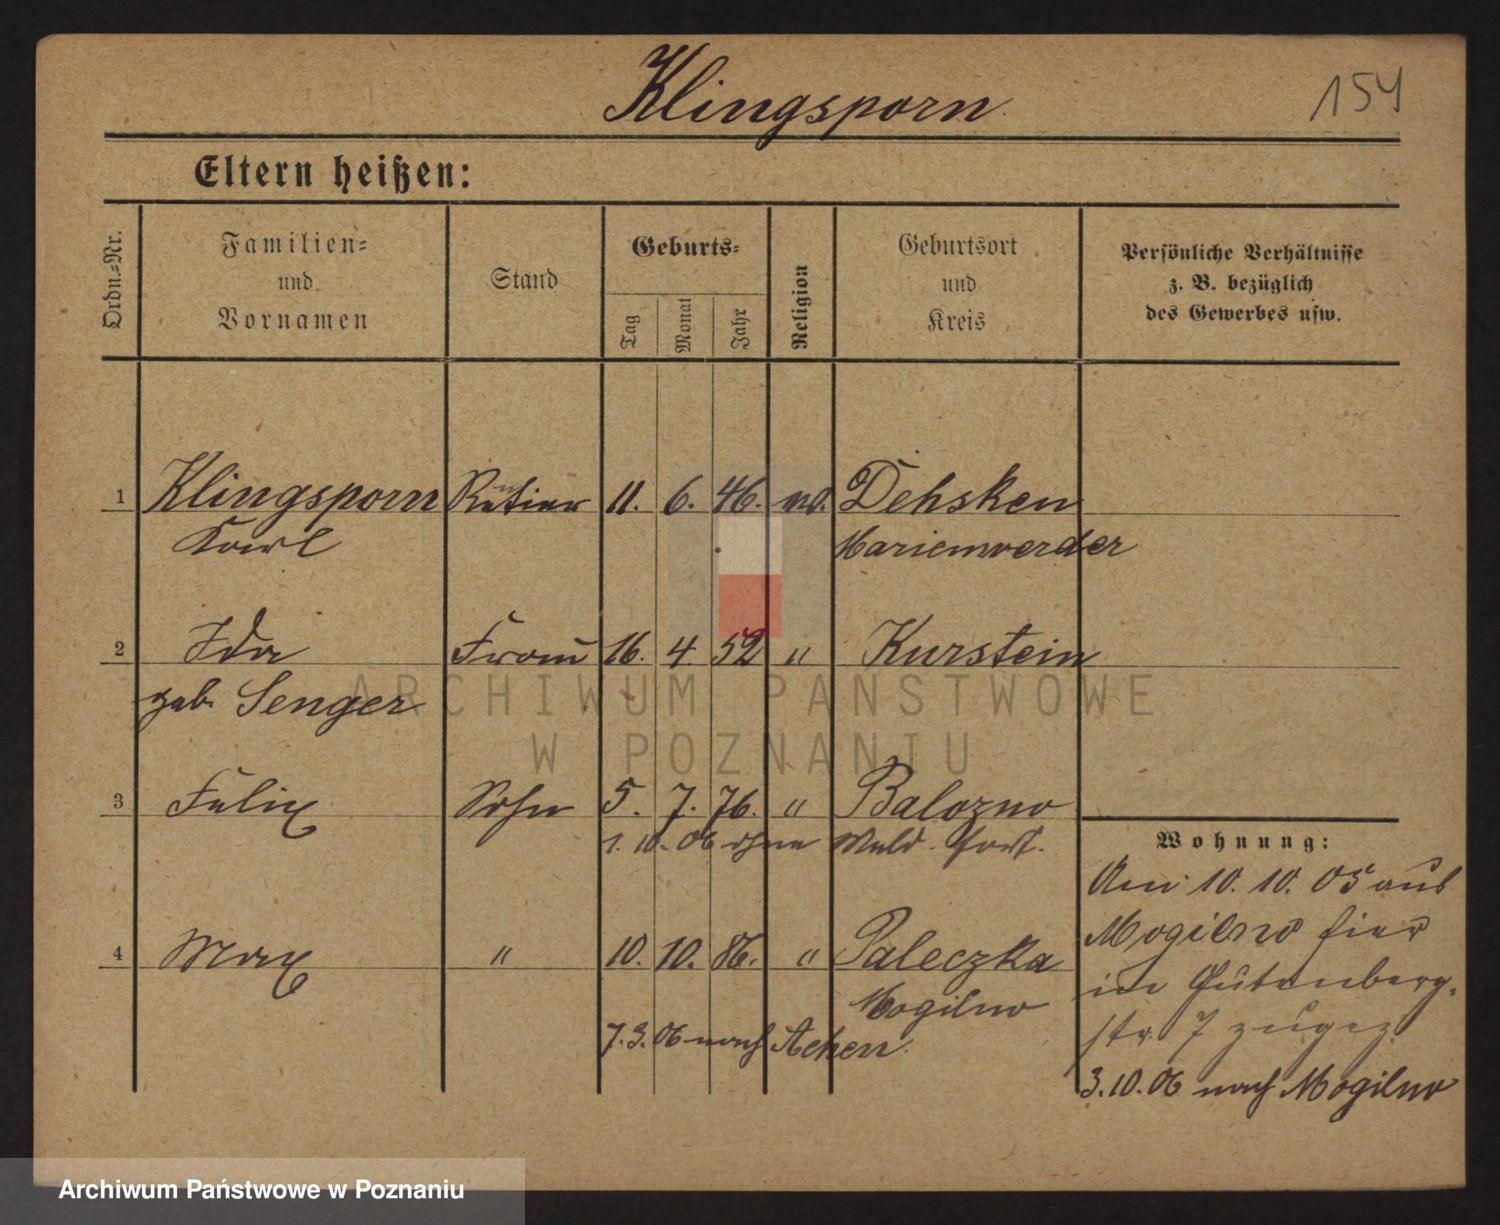 Klingsporn
154
Eltern heißen:
Ordn.-Nr.
Familien-
und
Vornamen
Stand
Geburts-
Tag
Monat
Jahr
Religion
Geburtsort
und
Kreis
Persönliche Verhältnisse
z. B. bezüglich
des Gewerbes usw.
1 Klingsporn Rentier 11. 6. 46. ev. Dehsken
Karl Marienwerder
2 Ida Frau 16. 4. 52 " Kurstein
geb. Senger
3 Felix Sohn 5. 7. 76. " Balozno
1. 10. 06 ohne Meld. fort.
4 Max " 10. 10. 86. " Paleczka
Mogilno
7. 3. 06 nach Achen.
Wohnung:
Am 10. 10. 05 aus
Mogilno hier
in Gutenberg-
str. 7 zugez.
3. 10. 06 nach Mogilno
ARCHIWUM PAŃSTWOWE
W POZNANIU
Archiwum Państwowe w Poznaniu